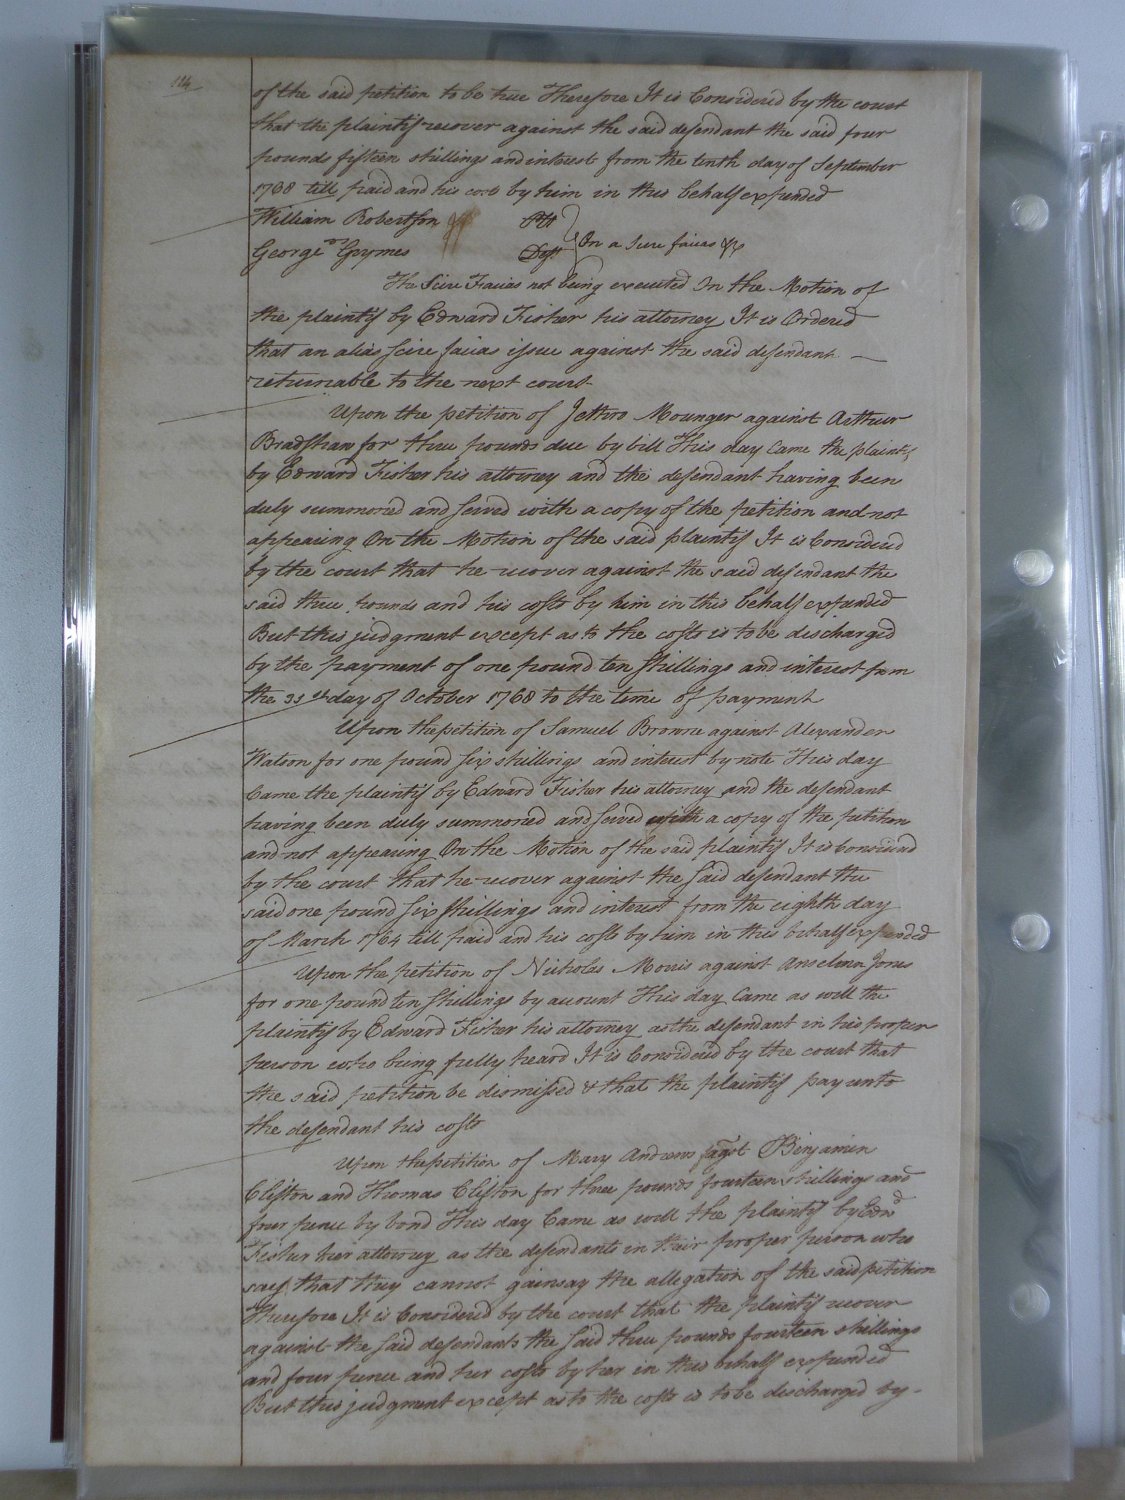 114
of the said petition to be true Therefore It is Considered by the court
that the plaintif recover against the said defendant the said four
pounds fifteen shillings and interest from the tenth day of September
1768 till paid and his costs by him in this behalf expended
William Robertson Plt
vs On a Scire facias &c
George Grymes Deft
The Scire Facias not being executed On the Motion of
the plaintif by Edward Fisher his attorney It is Ordered
that an alias scire facias issue against the said defendant —
returnable to the next court
Upon the petition of Jethro Mounger against Arthur
Bradshaw for three pounds due by bill This day Came the plaintif
by Edward Fisher his attorney and the defendant having been
duly summoned and served with a copy of the petition and not
appearing On the Motion of the said plaintif It is Considered
by the court that he recover against the said defendant the
said three pounds and his costs by him in this behalf expended
But this judgment except as to the costs is to be discharged
by the payment of one pound ten shillings and interest from
the day of October 1768 to the time of payment
Upon the petition of Samuel Browne against Alexander
Watson for one pound six shillings and interest by note This day
Came the plaintif by Edward Fisher his attorney and the defendant
having been duly summoned and served with a copy of the petition
and not appearing On the Motion of the said plaintif It is Considered
by the court that he recover against the said defendant the
said one pound six shillings and interest from the eighth day
of March 1764 till paid and his costs by him in this behalf expended
Upon the petition of Nicholas Morris against Anselmn Jones
for one pound ten shillings by account This day Came as well the
plaintif by Edward Fisher his attorney as the defendant in his proper
person who being fully heard It is Considered by the court that
the said petition be dismissed & that the plaintif pay unto
the defendant his costs
Upon the petition of Mary Andrews Benjamin
Clifton and Thomas Clifton for three pounds fourteen shillings and
four pence by bond This day Came as well the plaintif by Edwd
Fisher her attorney as the defendants in their proper person who
says that they cannot gainsay the allegation of the said petition
Therefore It is Considered by the court that the plaintif recover
against the said defendants the said three pounds fourteen shillings
and four pence and her costs by her in this behalf expended
But this judgment except as to the costs is to be discharged by -